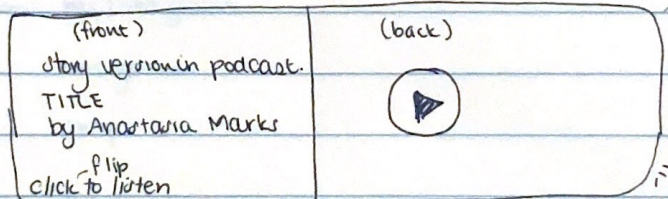 (front)
story version in podcast.
TITLE
by Anastasia Marks
flip
click to listen
(back)